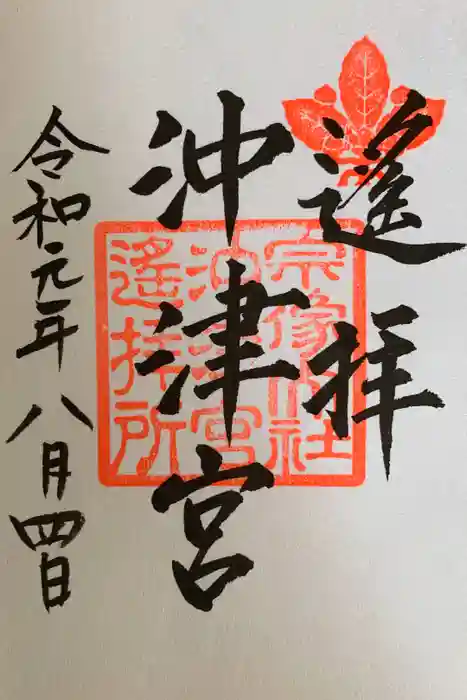 遙拝
沖津宮
令和元年八月四日
宗像大社
沖津宮
遙拝所